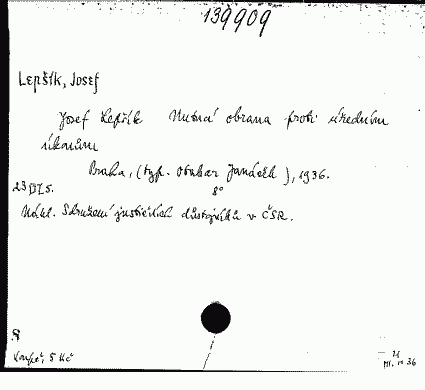 139909
Lepšík, Josef
Josef Lepšík Nutná obrana proti úředním
úkonům
Praha, (typ. Otakar Janáček), 1936.
23 str. 8°
Nákl. Sdružení justičních důstojníků v ČSR.
Koupě, 5 Kč
36